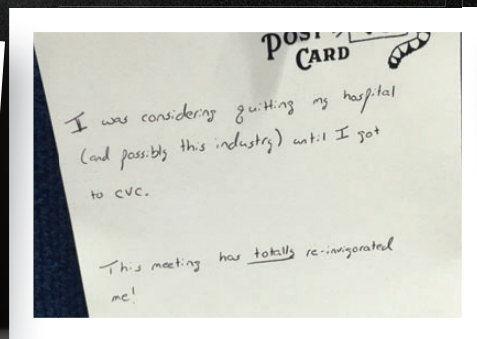 POST
CARD
I was considering quitting my hospital
(and possibly this industry) until I got
to CVC.
This meeting has totally re-invigorated
me!